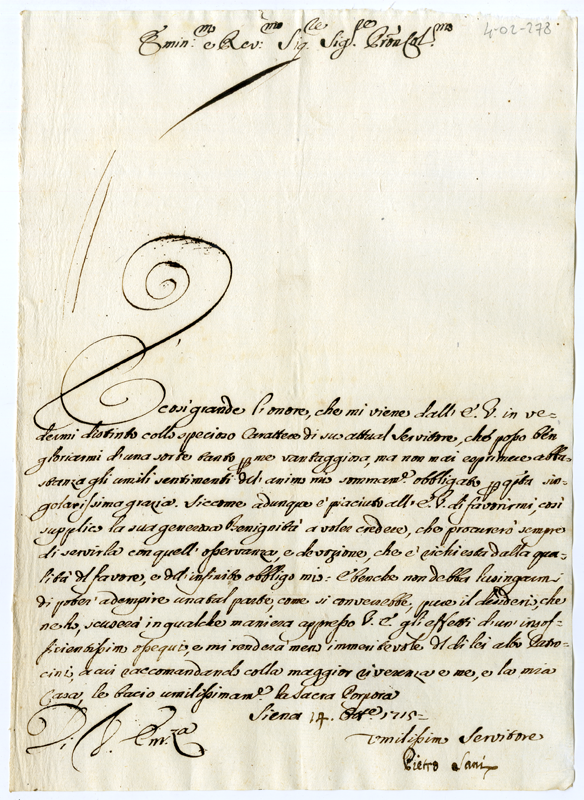 4-02-278
Emin.mo e Rev.mo Sig.re Sig.re Pron Col.mo
È così grande l'onore, che mi viene dall'E. V. in ve=
dermi distinto collo specioso Carattere di suo attual Servitore, che posso ben
gloriarmi di una sorte tanto per me vantaggiosa, ma non mai esprimere abba=
stanza gli umili sentimenti del animo mio sommam.e obbligato per q̃sta sin=
golarissima grazia. Siccome adunque è piaciuto all'E. V. di favorirmi, così
supplico la sua generosa Benignità a voler credere, che procurerò sempre
di servirla con quell'osservanza, e devozione, che è richiesta dalla qua=
lità del favore, e dal infinito obbligo mio: E benche non debba lusingarmi
di poter adempire una tal parte, come si converebbe, pure il desiderio, che
ne ho, scuserà in qualche maniera appresso V. E. gli effetti d'un insof=
ficientissimo ossequio, e mi renderà meno immeritevole del di lei alto Patro=
cinio, a cui raccomandando colla maggior riverenza e me, e la mia
Casa, le bacio umilissimam.e la Sacra Porpora
Siena 14. 1715=
Di V. Em.za
Umilissimo Servitore
Pietro Sani